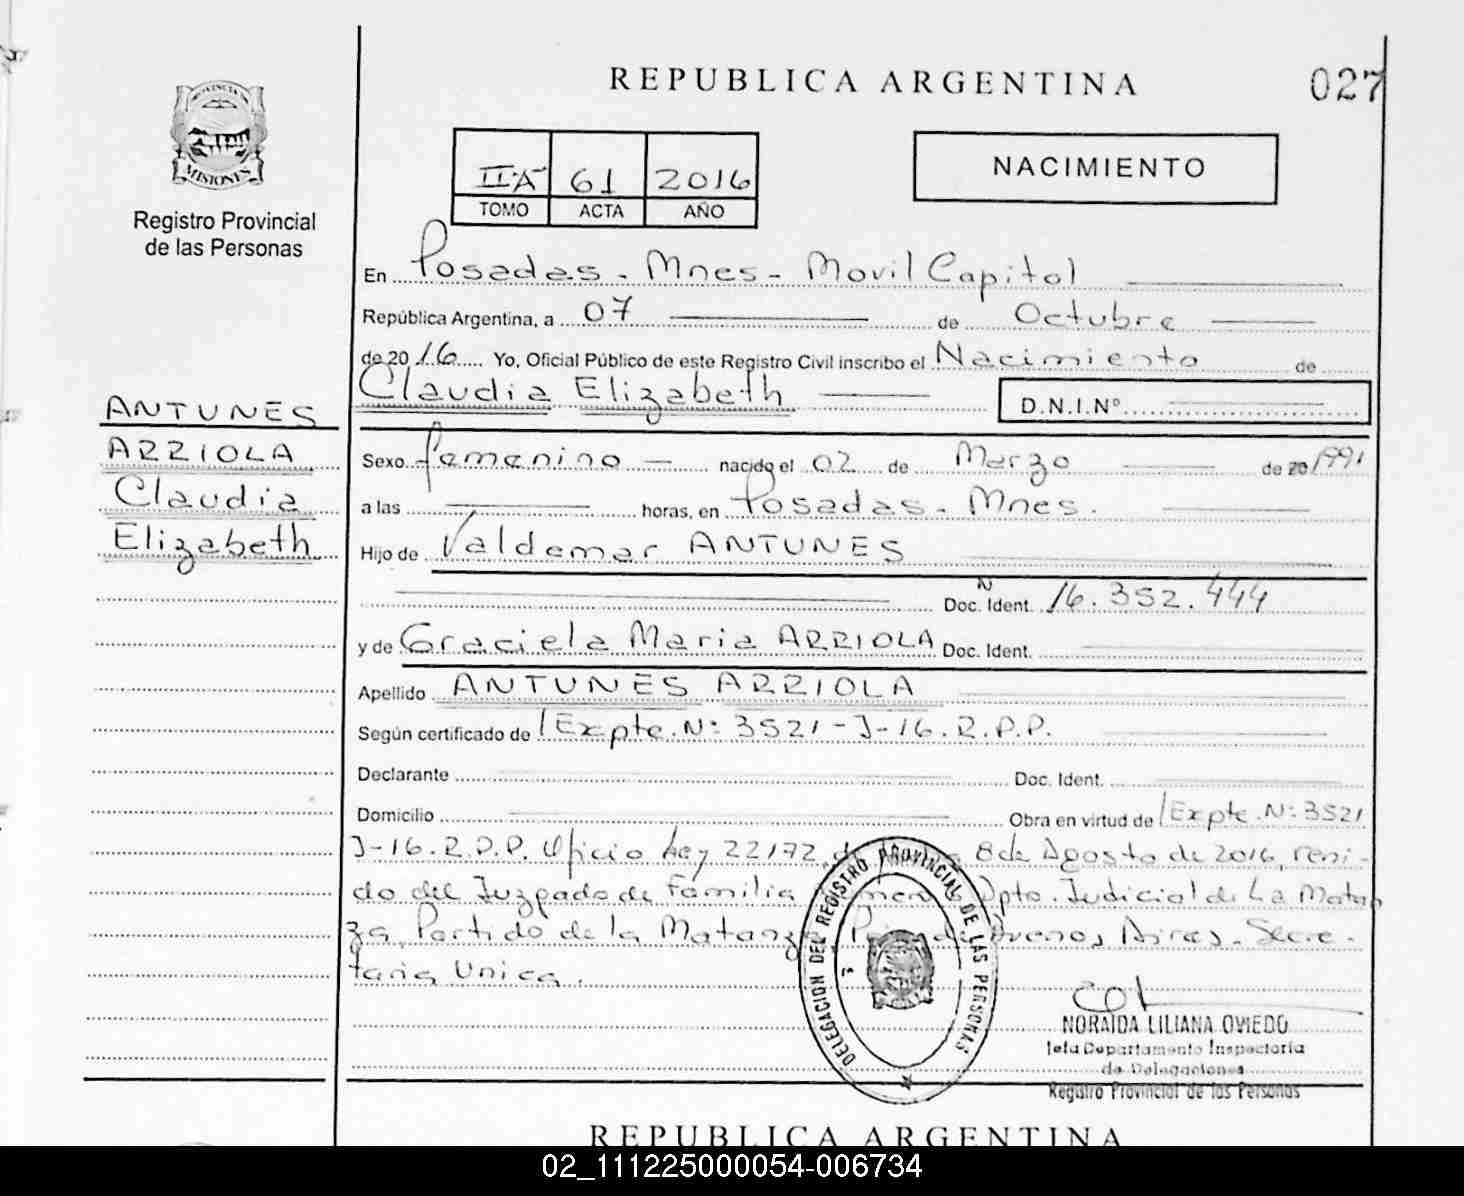 REPUBLICA ARGENTINA
027
PROVINCIA DE
MISIONES
Registro Provincial
de las Personas
IIA 61 2016
TOMO ACTA AÑO
NACIMIENTO
En Posadas - Mnes - Movil Capital
República Argentina, a 07 de Octubre
de 2016 Yo, Oficial Público de este Registro Civil inscribo el Nacimiento de
Claudia Elizabeth
D.N.I.Nº
ANTUNES
ARRIOLA
Claudia
Elizabeth
Sexo femenino nacido el 02 de Marzo de 20 1991
a las horas, en Posadas - Mnes.
Hijo de Valdemar ANTUNES
Doc. Ident. 16.352.444
y de Graciela Maria ARRIOLA Doc. Ident.
Apellido ANTUNES ARRIOLA
Según certificado de Expte. Nº 3521-J-16.R.P.P.
Declarante Doc. Ident.
Domicilio Obra en virtud de Expte. Nº 3521
J-16.R.P.P. Oficio Ley 22172, 8 de Agosto de 2016, reni-
do del Juzgado de Familia Dpto. Judicial de La Matan
za, Partido de la Matanza, Buenos Aires - Secre-
taria Unica.
DELEGACION DEL REGISTRO PROVINCIAL DE LAS PERSONAS
NORAIDA LILIANA OVIEDO
Jefa Departamento Inspectoria
de Delegaciones
Registro Provincial de las Personas
REPUBLICA ARGENTINA
02_111225000054-006734